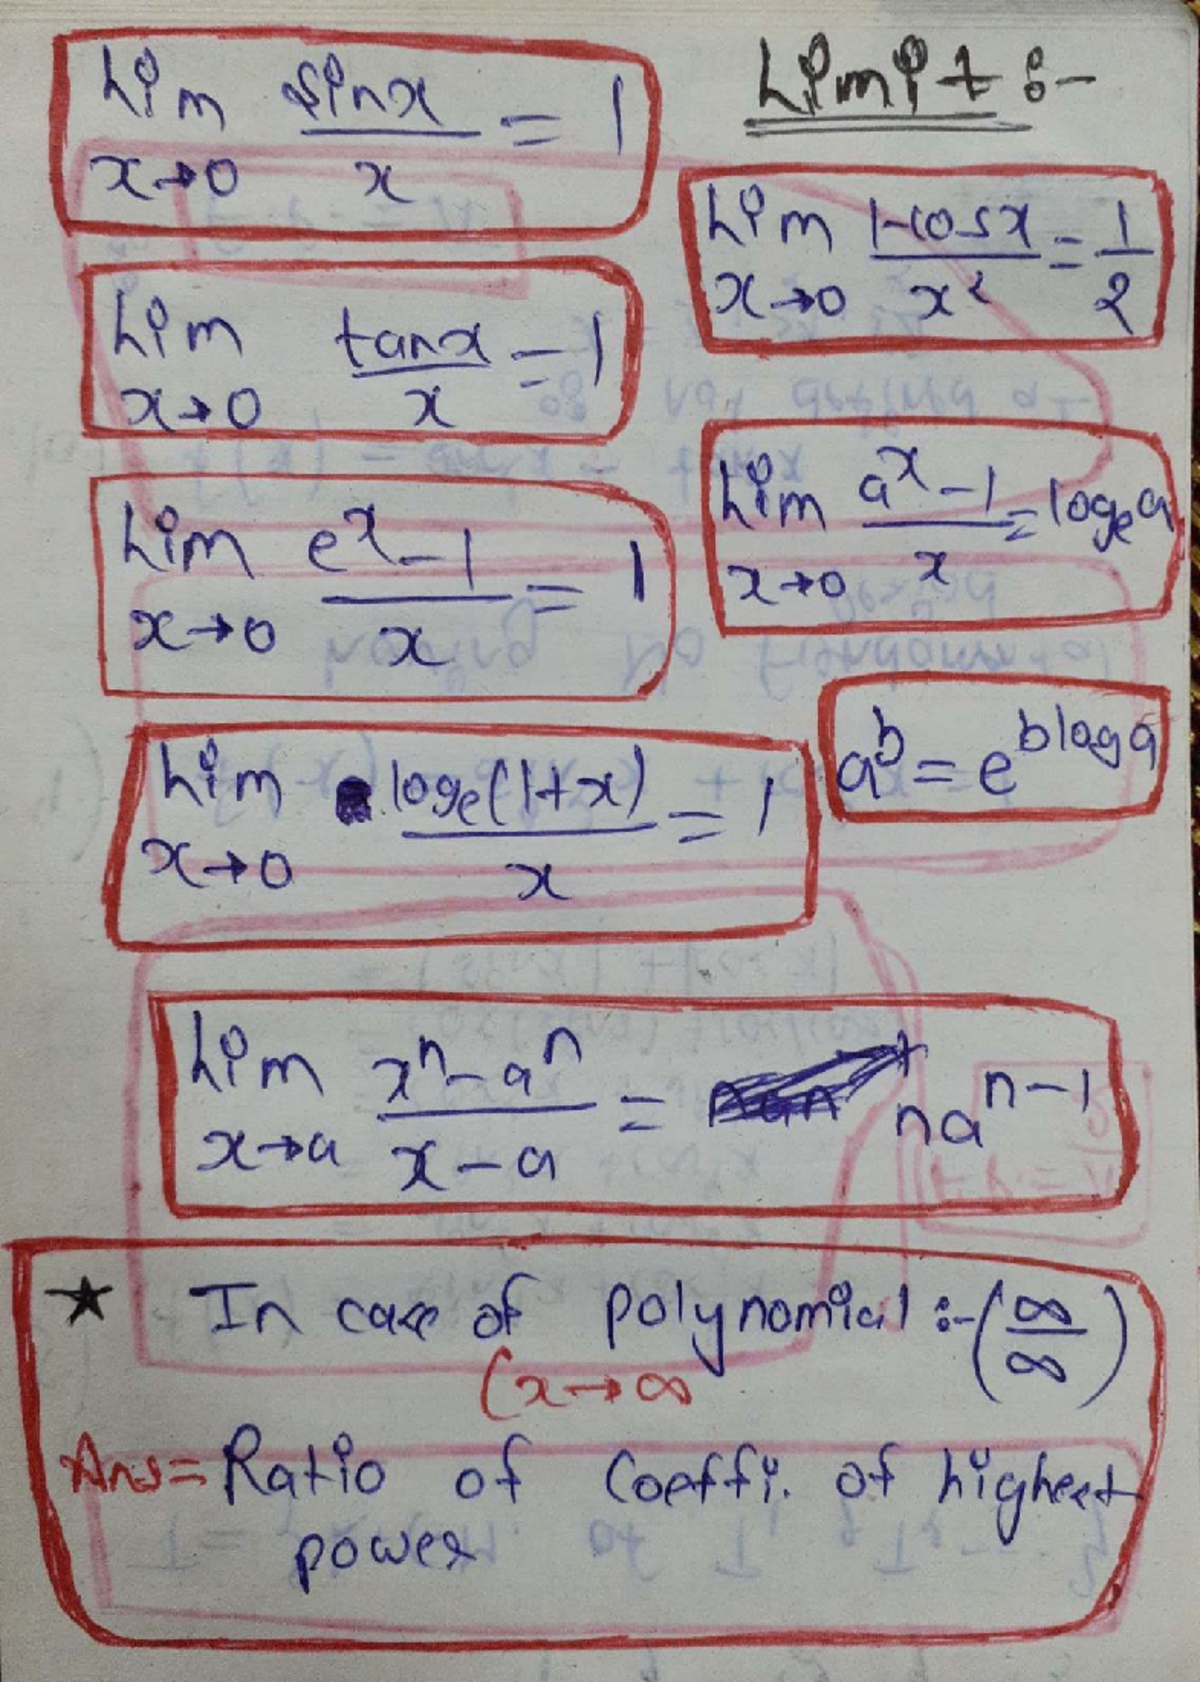 Limit :-
lim x→0 sinx/x = 1
lim x→0 1-cosx/x² = 1/2
lim x→0 tanx/x = 1
lim x→0 a^x-1/x = logₑa
lim x→0 e^x-1/x = 1
a^b = e^(bloga)
lim x→0 logₑ(1+x)/x = 1
lim x→a x^n-a^n/x-a = na^(n-1)
★ In case of polynomial :- (∞/∞)
(x→∞
Ans= Ratio of Coeffi. of highest
power